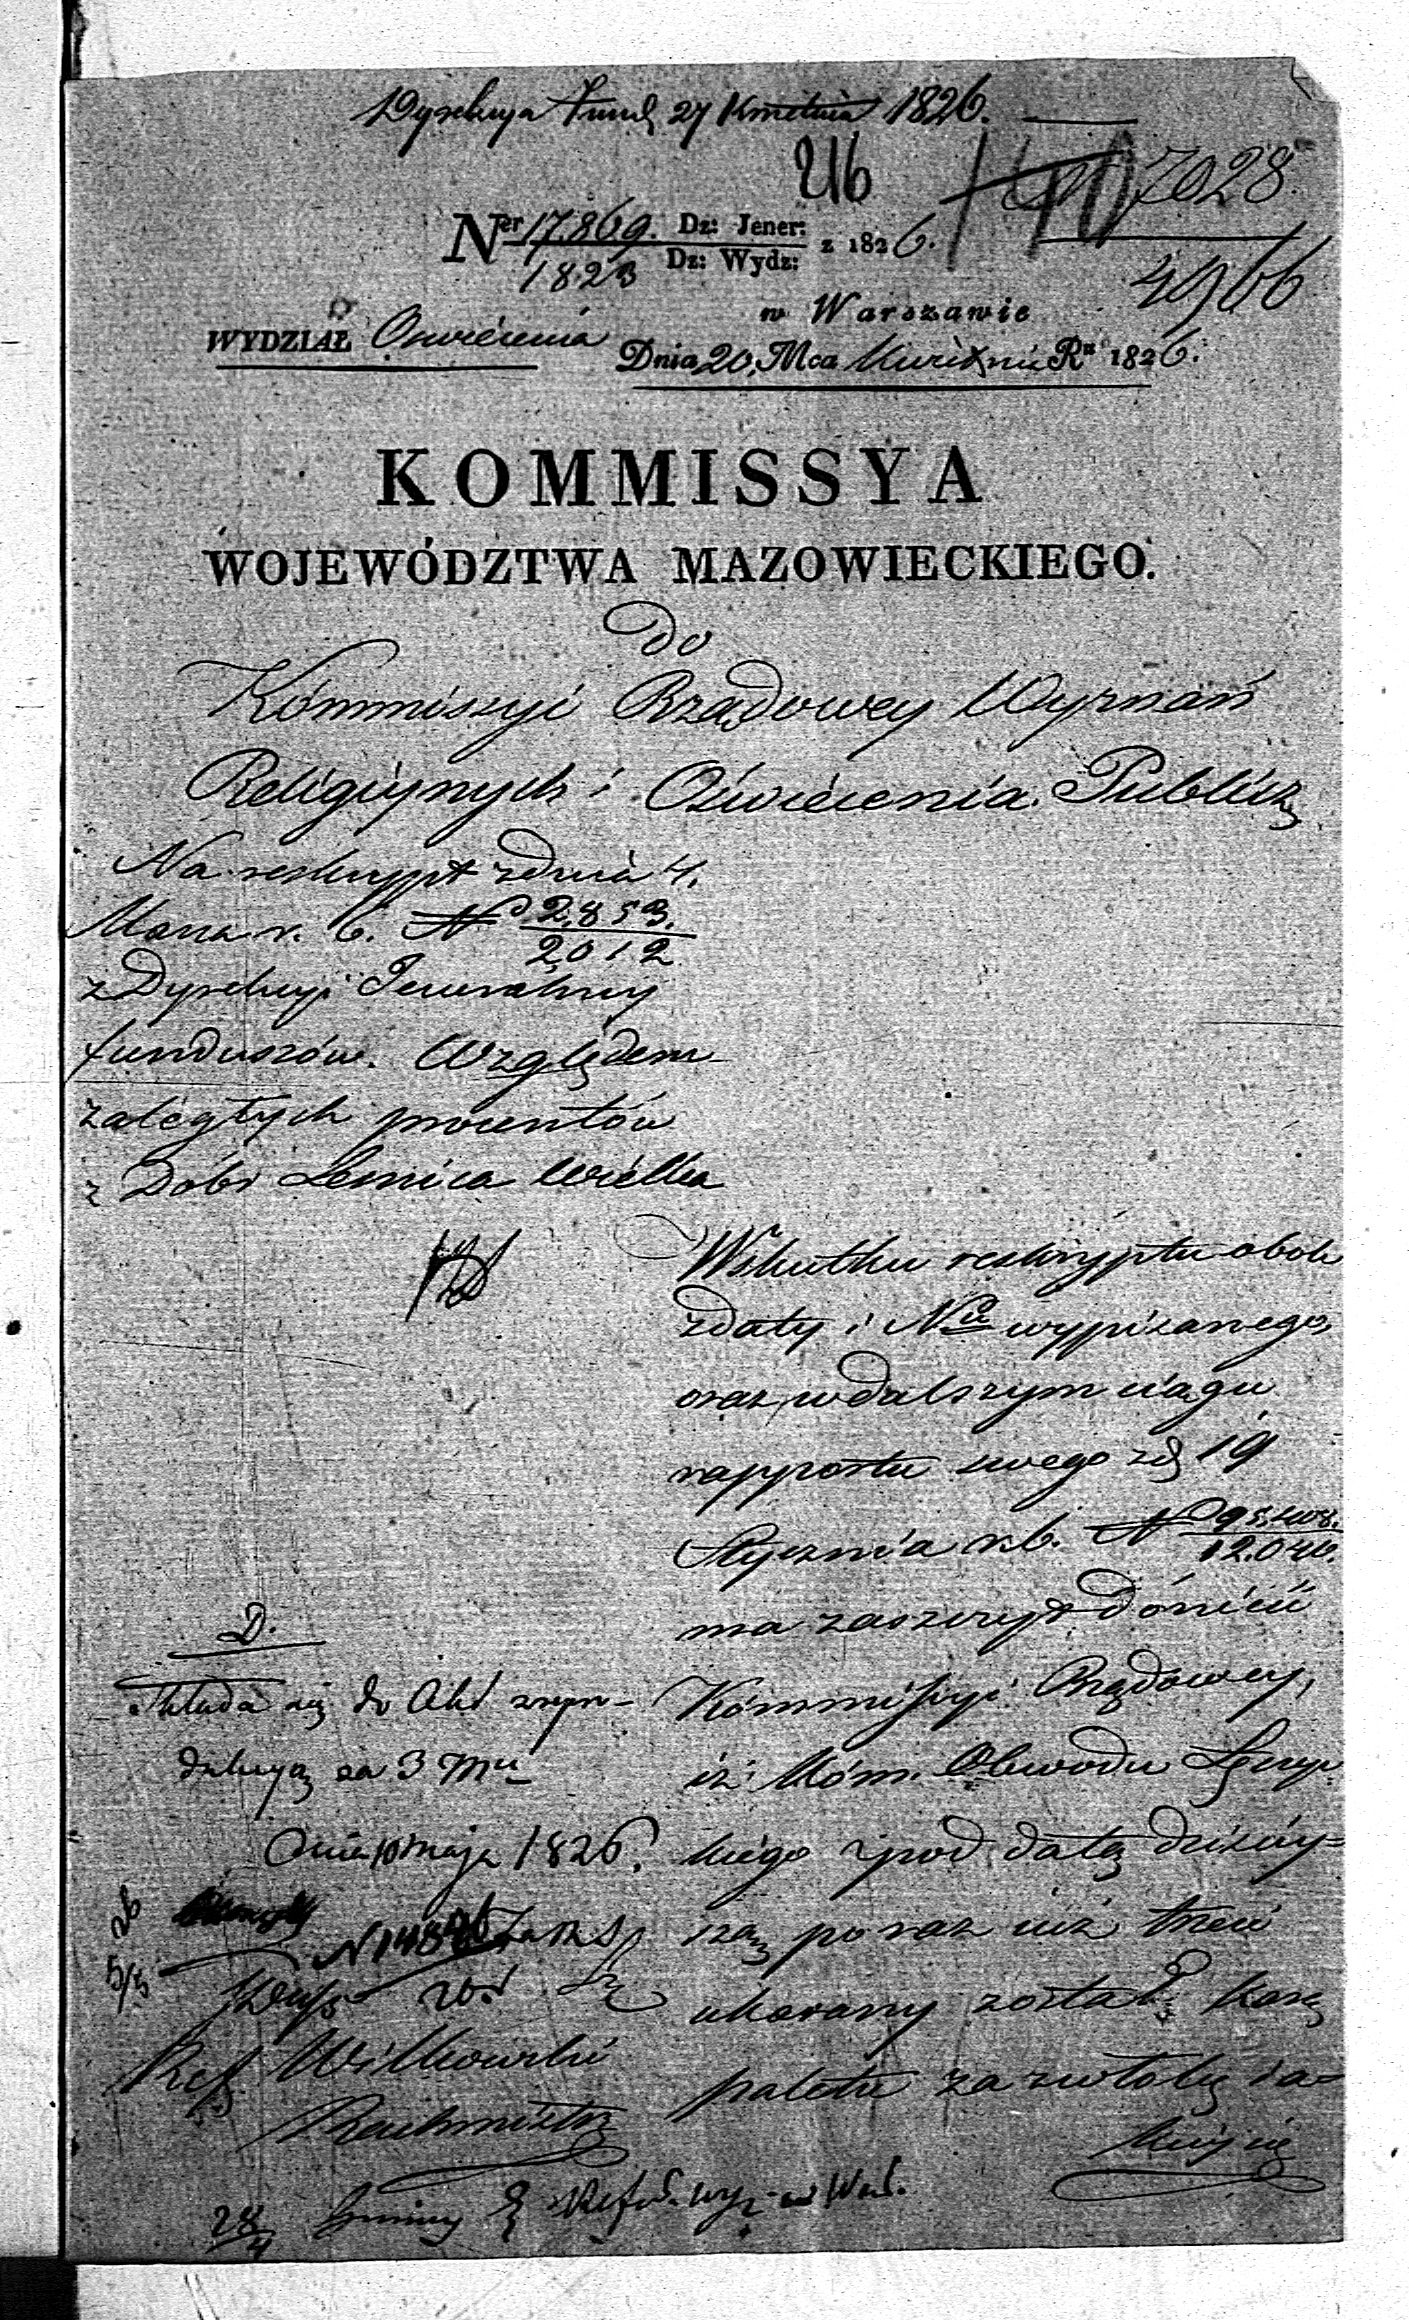 Dyrekcya Fund. 27 Kwietnia 1826.
216
7028
4966
Ner 17.869. Dz: Jener: z 1826.
1823 Dz: Wydz:
w Warszawie
WYDZIAŁ Oświecenia
Dnia 20, Mca Kwietnia Ru 1826.
KOMMISSYA
WOJEWÓDZTWA MAZOWIECKIEGO.
Do
Kommissyi Rządowey Wyznań
Religiynych i Oświecenia Publicz
Na reskrypt z dnia 4.
Marca r. b. No 2.853.
2012
z Dyrekcyi Jeneralney
funduszów. Względem
zaległych procentów
z Dóbr Leśnica Wielka
Wskutku reskryptu obok
z daty i Nru wypisanego,
oraz w dalszym ciągu
rapportu swego z d. 19
Stycznia r. b. No 95.408.
12.046.
ma zaszczyt donieść
Kommissyi Rządowey,
iż Kom. Obwodu Łęczyc-
kiego pod datą dzisiey-
szą po raz już trzeci
ukarany został karą
pakietu za zwłokę ia-
kiey się
D.
składa się do Akt z repr-
dukcyą za 3 Mce
Dnia 10 Maja 1826.
26
5/5
Ref Wilkowski
Rachmistrz
28/4